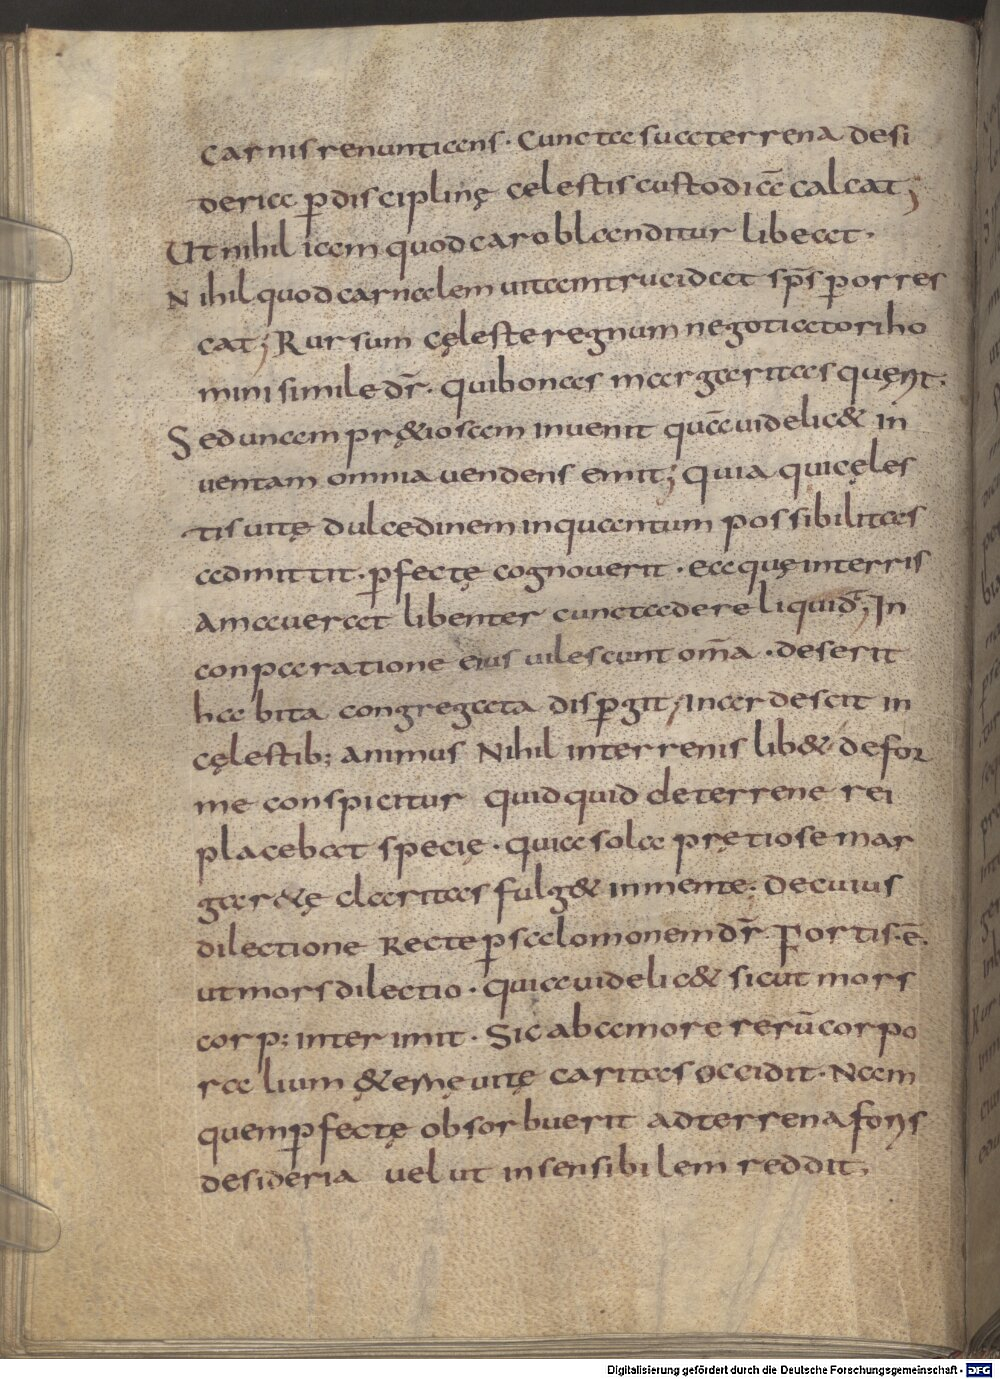 carnis renuntians · Cuncta sua terrena desi
deria p̱ disciplinę celestis custodiā calcat;
Ut nihil iam quod caro blanditur libeat ·
Nihil quod carnalem uitam trucidat sp̄s p̱orres
cat; Rursum cęleste regnum negotiatori ho
mini simile dr̄ · qui bonas margaritas quęrit ·
Sed unam pr&iosam inuenit quā uidelic& in
uentam omnia uendens emit; Quia qui cęles
tis uitę dulcedinem inquantum possibilitas
admittit · p̱fectę cognouerit · ea quę interris
amauerat libenter cuncta dereliquid; In
conparatione eius uilescunt om̄a · deserit
habita congregata disp̱git; inardescit in
cęlestib; animus Nihil interrenis lib& defor
me conspicitur quidquid deterrene rei
placebat specie · quia sola prętiose mar
gar&ę claritas fulg& inmente; De cuius
dilectione Recte p̱ salomonem dr̄ Fortis · ē ·
ut mors dilectio · quia uidelic& sicut mors
corp; interimit · Sic ab amore rerū corpo
ralium &ernę uitę caritas occidit · Nam
quem p̱fectę obsorbuerit ad terrena foris
desideria uelut insensibilem reddit;
Digitalisierung gefördert durch die Deutsche Forschungsgemeinschaft - DFG